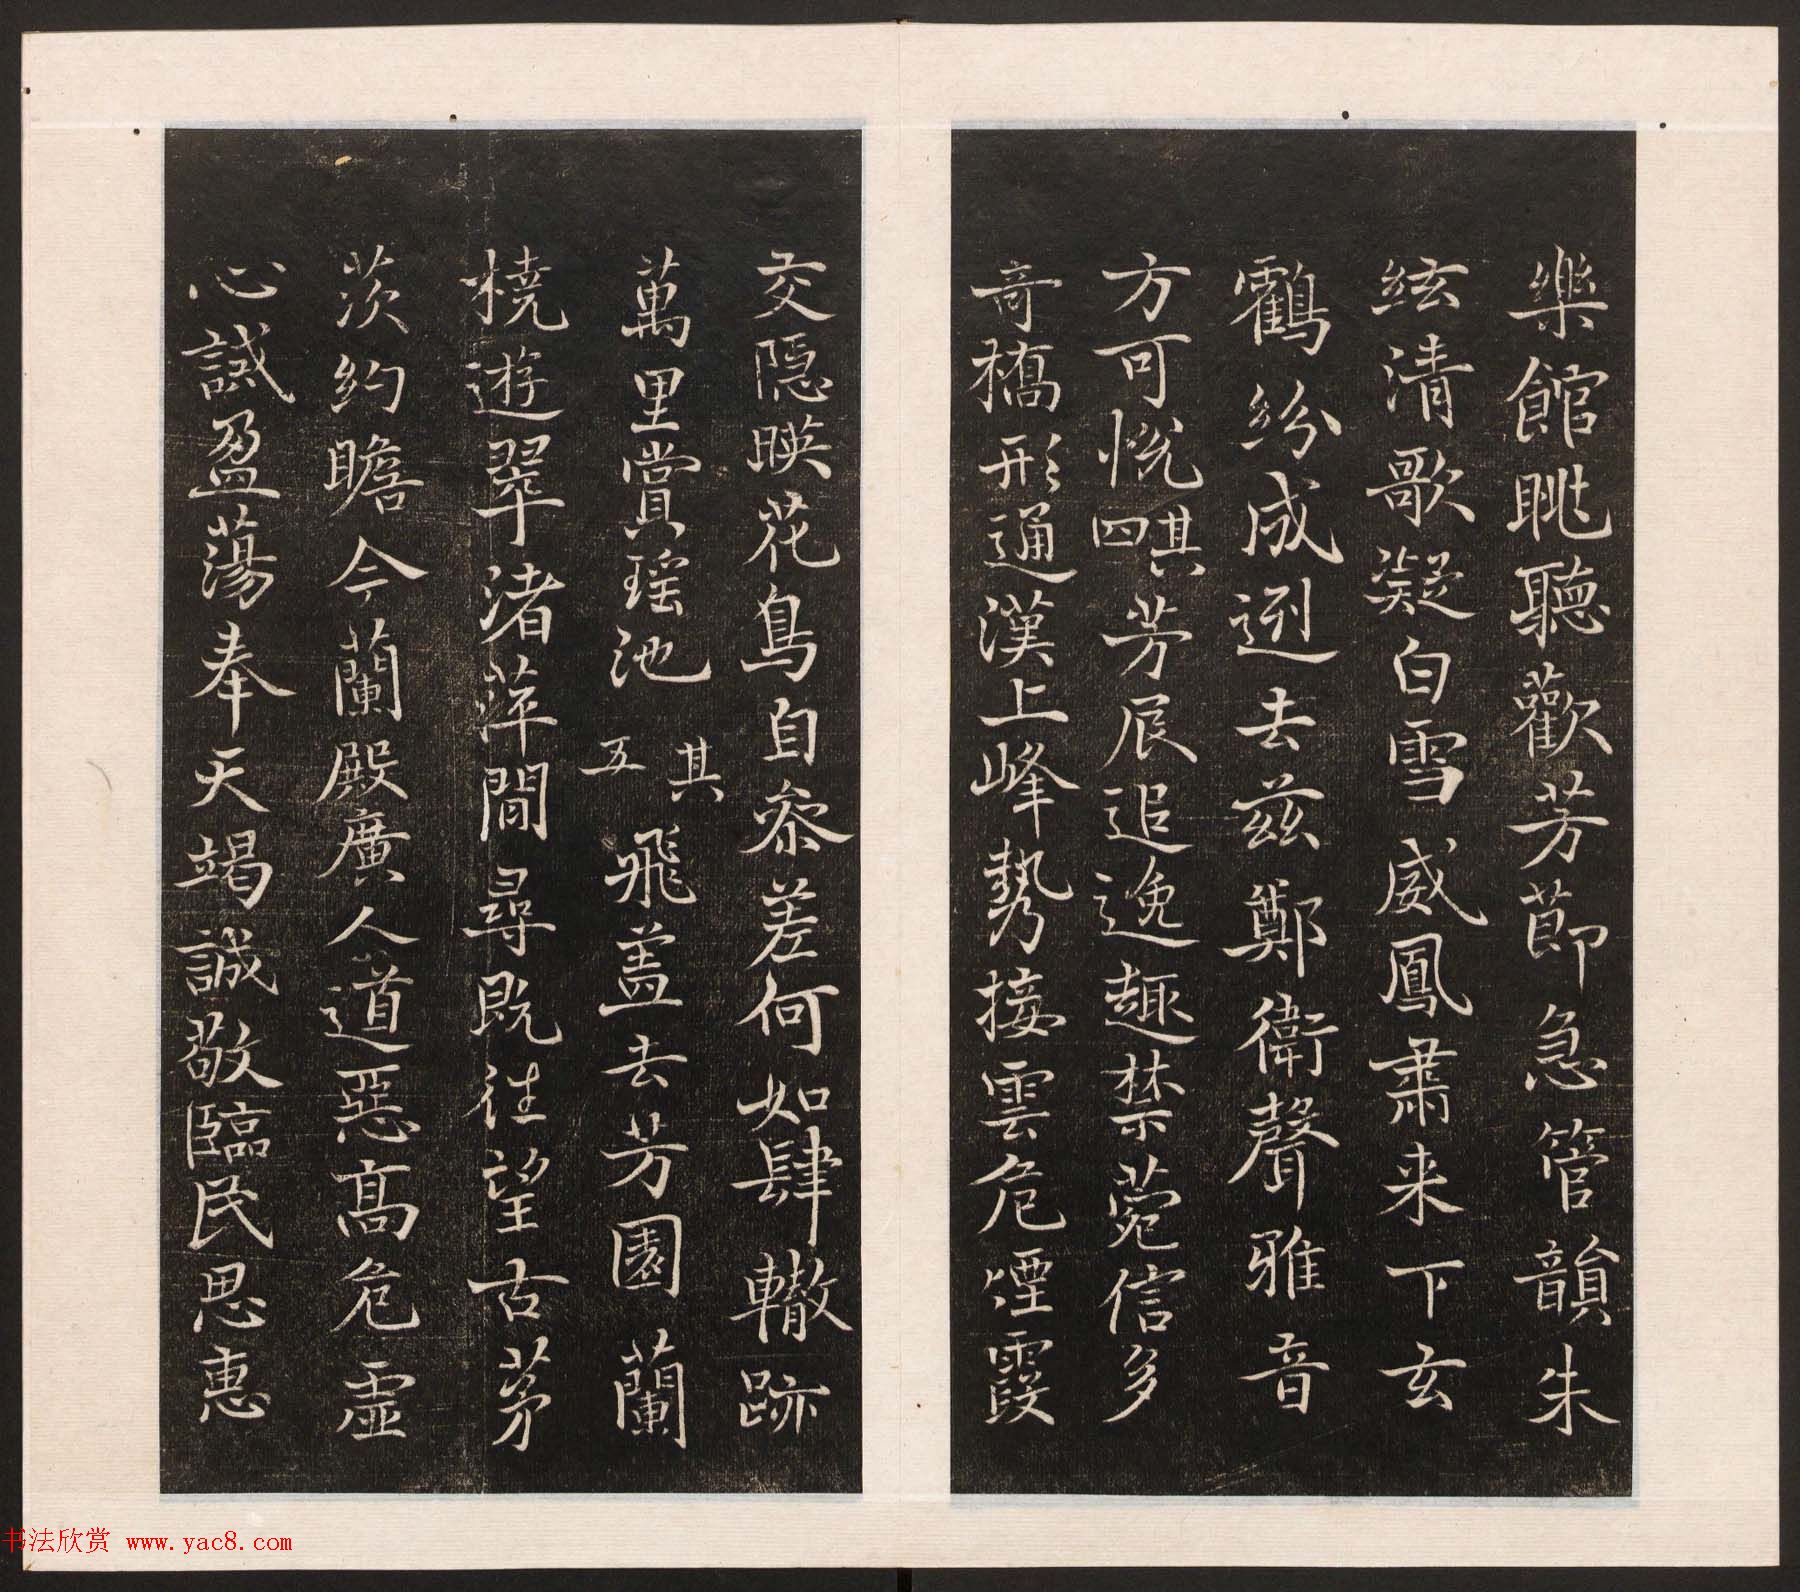 樂館眺聽歡芳節急管韻朱
絃清歌凝白雪威鳳肅来下玄
鶴紛成迾去兹鄭衛聲雅音
方可悅其四芳辰追逸趣禁菀信多
奇橋形通漢上峰勢接雲危煙霞
交隱暎花鳥自叅差何如肆轍跡
萬里賞瑶池其五飛盖去芳園蘭
橈遊翠渚萍間尋既往望古茅
茨約瞻今蘭殿廣人道惡高危虚
心誡盈蕩奉天竭誠敬臨民思惠
书法欣赏 www.yac8.com